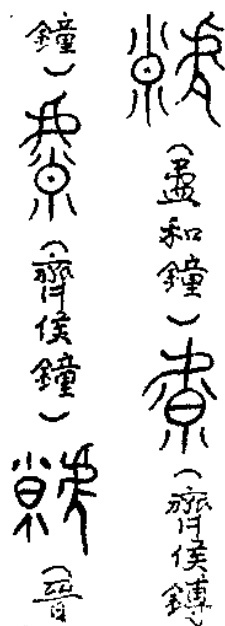 （盄和鐘）（齊侯鎛
鐘）（齊侯鐘）（晉